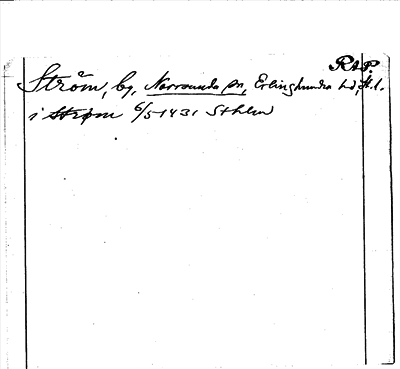 RAP.
Ström, by, Norrsunda sn, Erlinghundra hd, St.l.
i Strøm 6/5 1431 Sthlm